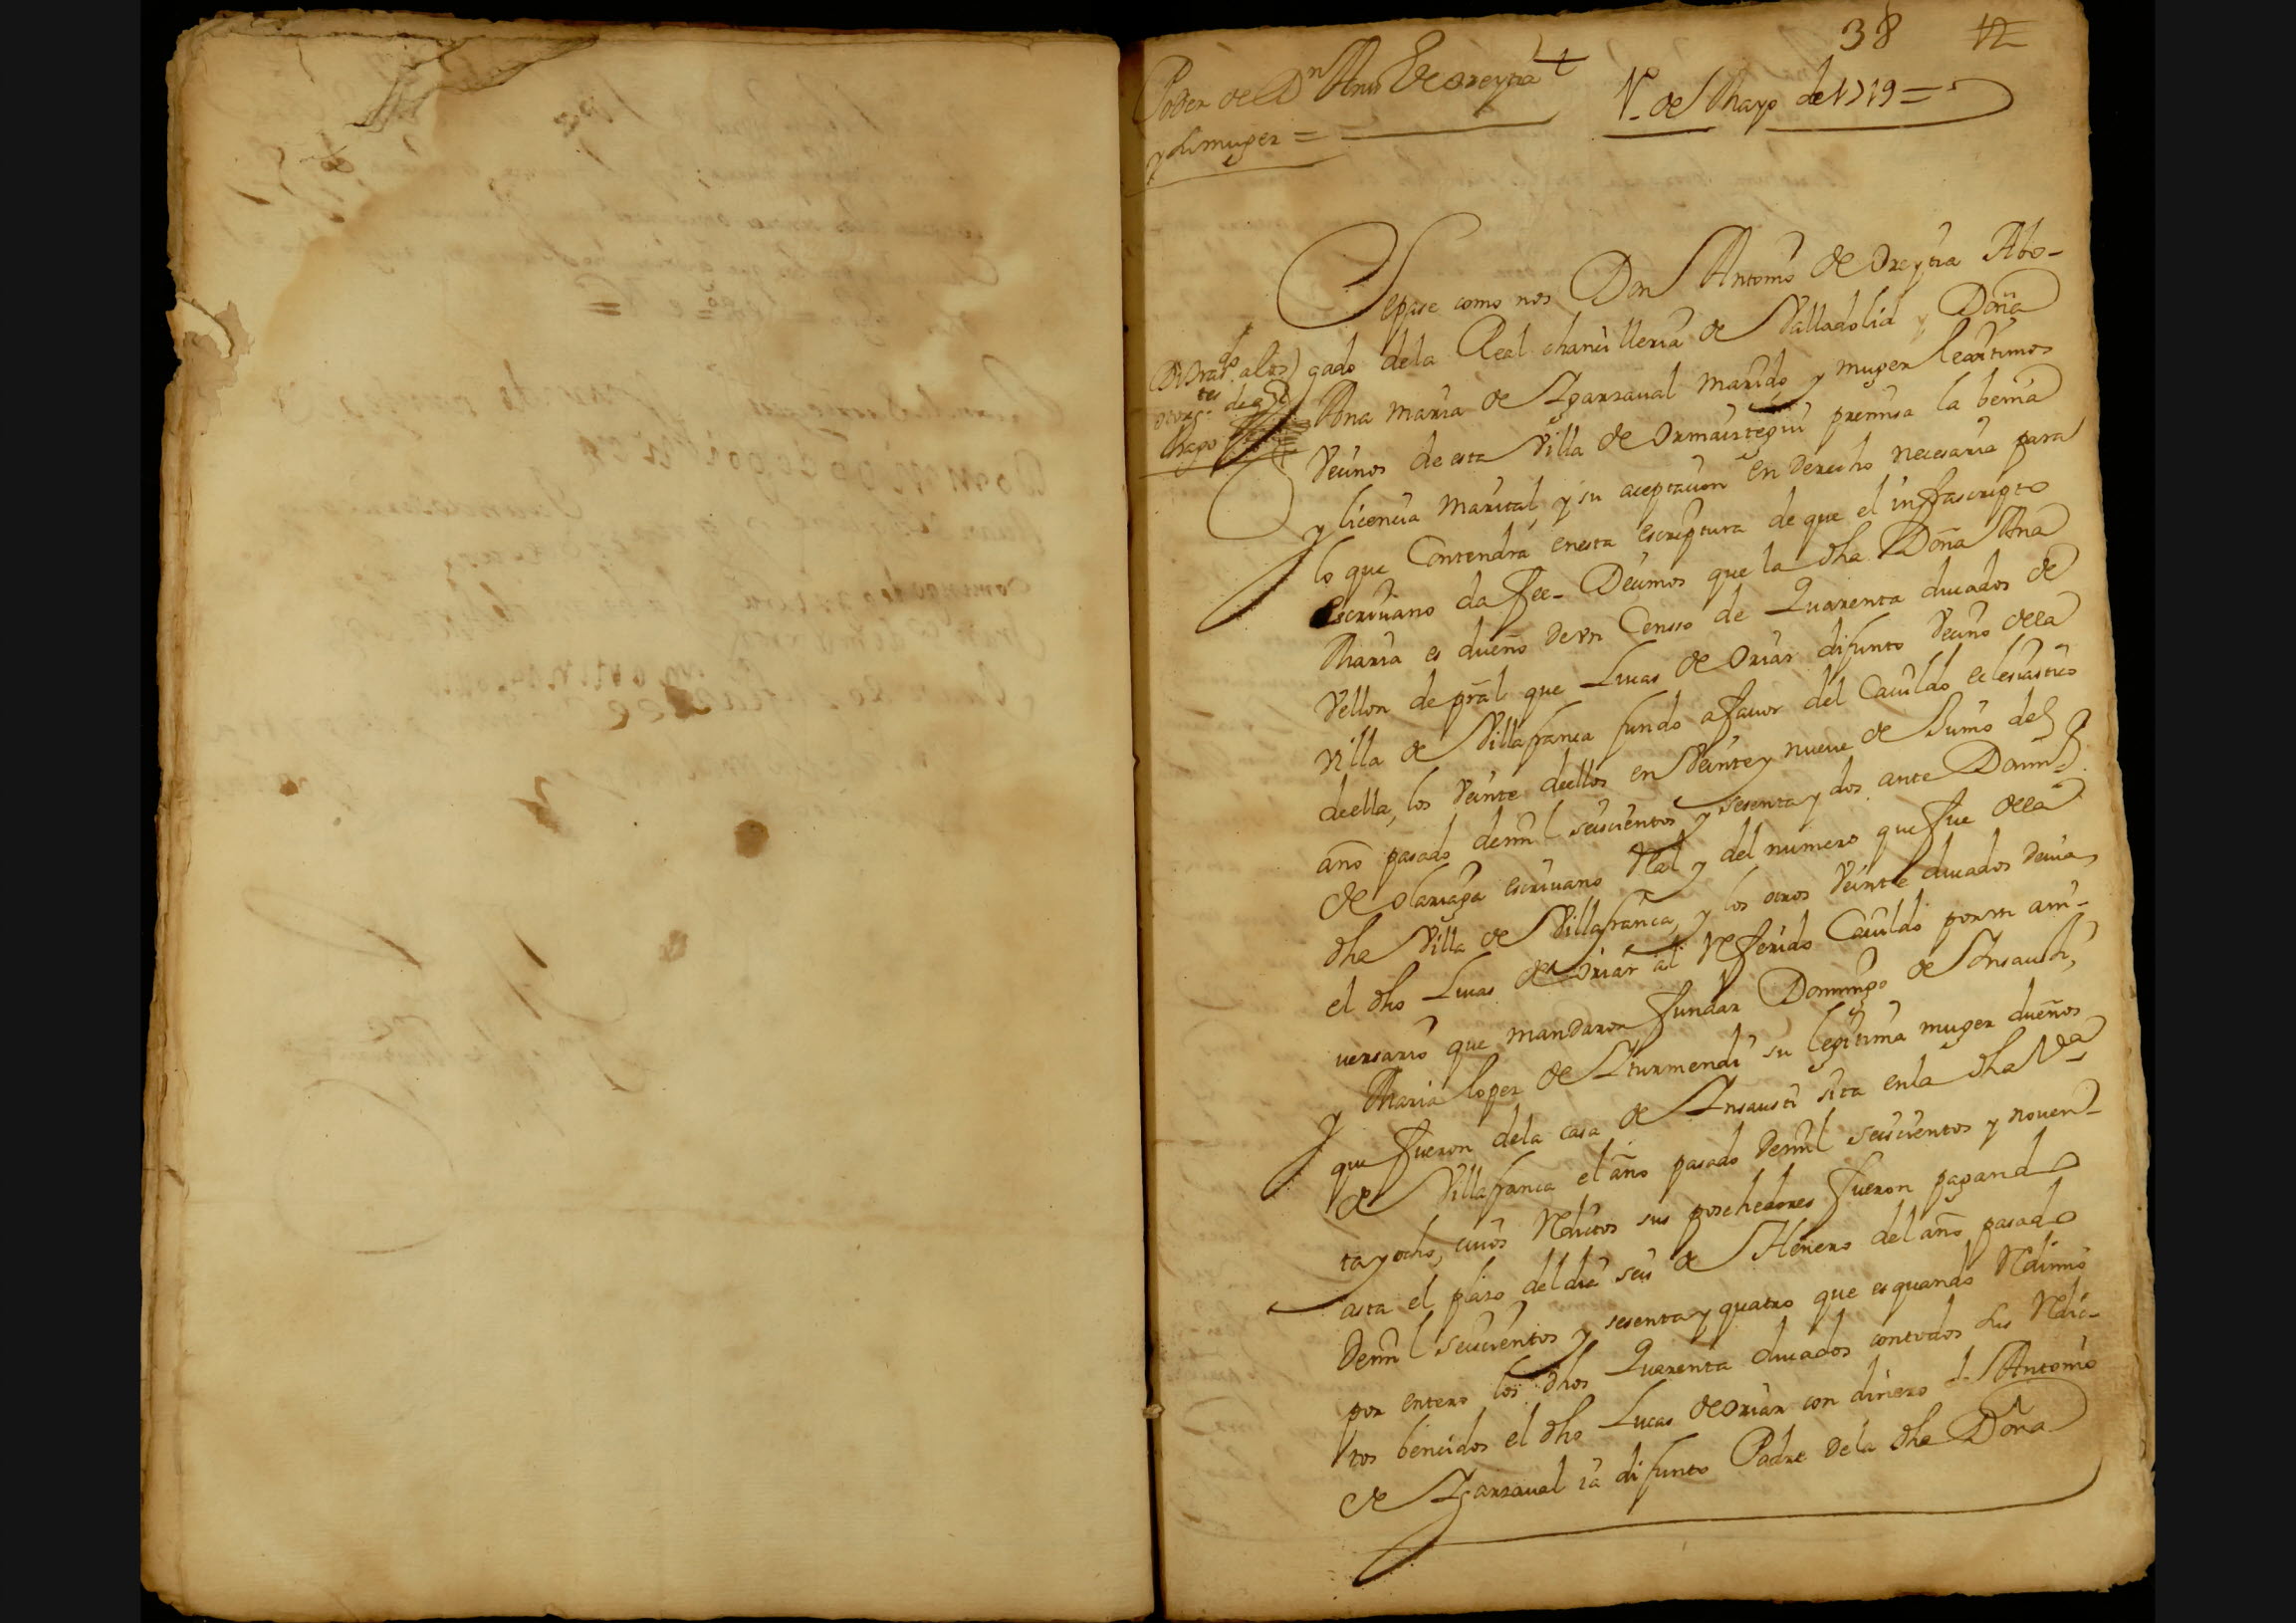 38 12
Poder de Dn Anto de Oreytia
y su muger =
1º de Mayo de 1719 =
Sepase como nos Don Antonio de Oreytia Abo-
gado dela Real chancilleria de Valladolid y Doña
Ana maria de Yganzaual marido y muger lexitimos
Vecinos de esta Villa de Ormaiztegui premisa la benia
y licencia marital y su aceptacion en derecho necesaria para
lo que Contendrá enesta escriptura de que el infrascripto
Escriuano da fee- Decimos que la dha Doña Ana
Maria es dueño de vn Censso de Quarenta ducados de
Vellon de pral que Lucas de Oriar difunto Vecino dela
Villa de Villafranca fundo afauor del Cauildo eclesiastico
deella, los Veinte deellos en Veinte y nueue de Junio del
año pasado demil seiscientos y sesenta y dos ante Domo
de olariaga escriuano Real y del numero que fue dela
dha Villa de Villafranca, y los otros Veinte ducados deuia
el dho Lucas de Oriar al Referido Cauildo por vn ani-
uersario que mandaron fundar Domingo de Insausti,
y Maria lopez de Yturmendi su legitima muger dueños
que fueron dela casa de Insausti sita enla dha Va
de Villafranca el año pasado demil seiscientos y noven-
ta y ocho, cuios Reditos sus posehedores fueron pagando
asta el plazo del dia seis de Henero del año pasado
Demil seiscientos y sesenta y quatro que es quando Redimio
por entero los dhos Quarenta ducados contodos sus Redi-
tos bencidos el dho Lucas de Oriar con dinero de Antonio
de Yganzaual ia difunto Padre dela dha Doña